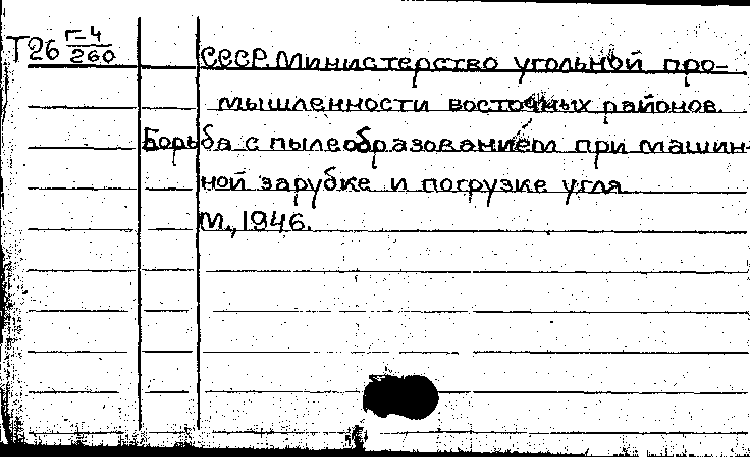 Т26 Г-4/260
СССР. Министерство угольной про-
мышленности восточных районов.
Борьба с пылеобразованием при машин-
ной зарубке и погрузке угля
М., 1946.